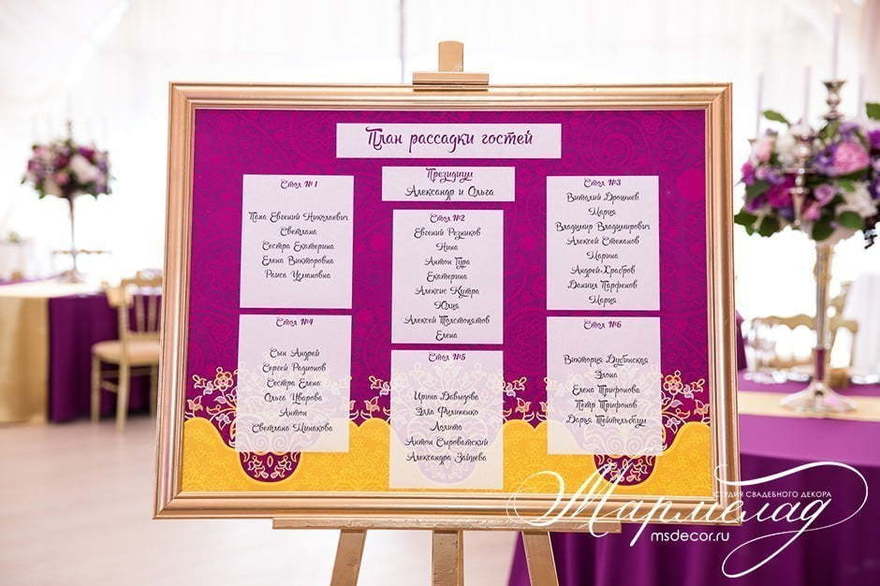 План рассадки гостей
Президиум
Александр и Ольга
Стол №1
Папа Евгений Николаевич
Светлана
Сестра Екатерина
Елена Викторовна
Раиса Устиновна
Стол №2
Евгений Резников
Нина
Антон Тура
Екатерина
Алексис Кутра
Юлия
Алексей Толстопятов
Елена
Стол №3
Виталий Дрошнев
Мария
Владимир Владимирович
Алексей Степанов
Марина
Андрей Храбров
Даниил Парфенов
Мария
Стол №4
Сын Андрей
Сергей Радионов
Сестра Елена
Ольга Уварова
Антон
Светлана Шинакова
Стол №5
Ирина Давыдова
Элла Фоминенко
Лолита
Антон Сыроватский
Александра Зайцева
Стол №6
Виктория
Элона
Елена Трифонова
Петр Трифонов
Дарья
СТУДИЯ СВАДЕБНОГО ДЕКОРА
Мармелад
msdecor.ru